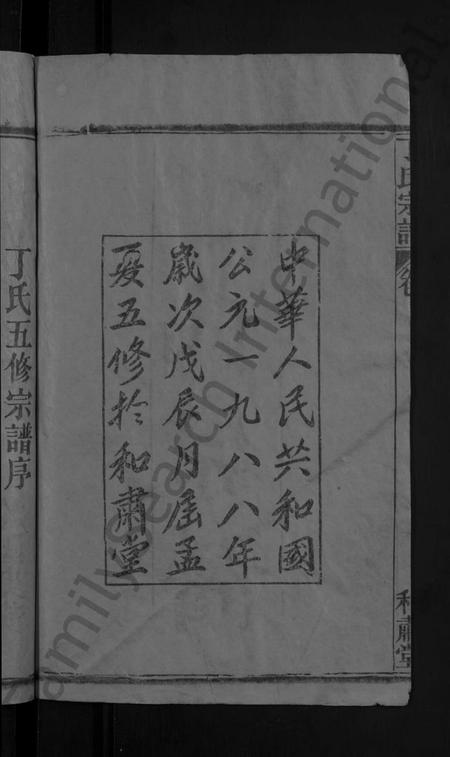 氏宗譜
和肅堂
中華人民共和國
公元一九八八年
歲次戊辰月屆孟
夏五修於和肅堂
丁氏五修宗譜序
FamilySearch International